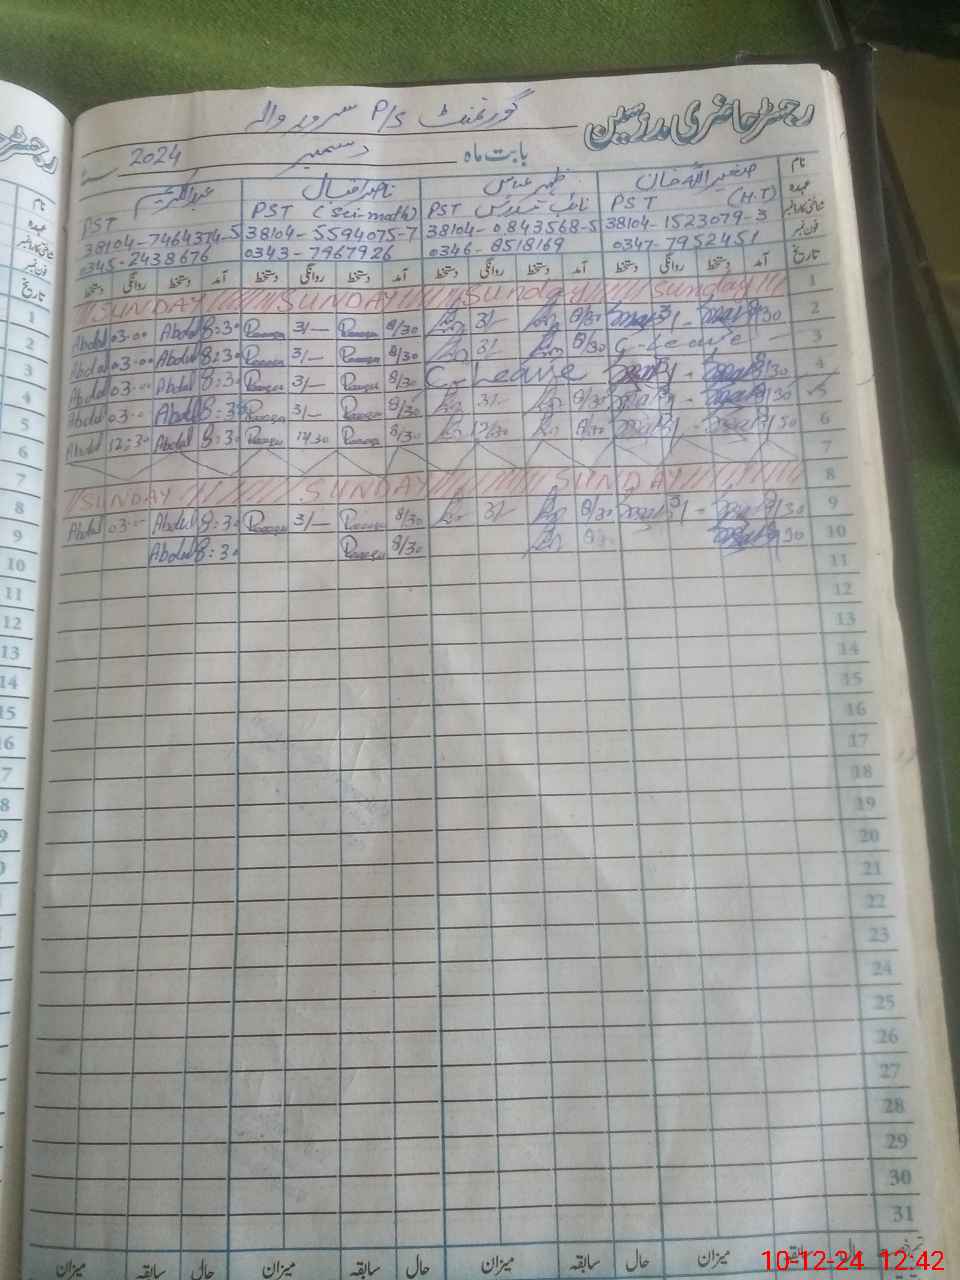 رجسٹر حاضری مدرسین
گورنمنٹ P/S سرور والہ
بابت ماہ دسمبر 2024
نام صغیر اللہ خان ظہیر عباس ناصر اقبال عبدالکریم
عہدہ PST (H.T) PST PST (Sci-math) PST
شناختی کارڈ نمبر 38104-1523079-3 38104-0843568-5 38104-5594075-7 38104-7464374-5
فون نمبر 0347-7952451 0346-8518169 0343-7967926 0345-2438676
تاریخ آمد دستخط روانگی دستخط آمد دستخط روانگی دستخط آمد دستخط روانگی دستخط آمد دستخط روانگی دستخط
1 SUNDAY SUNDAY Sunday Sunday
2 8/30 3/- 8/30 3/- 8/30 3/- Abdul 8:30 Abdul 03:00
3 C-Leave 8/30 3/- 8/30 3/- Abdul 8:30 Abdul 03:00
4 8/30 3/- C-Leave 8/30 3/- Abdul 8:30 Abdul 03:00
5 8/30 3/- 8/30 3/- 8/30 3/- Abdul 8:30 Abdul 03:00
6 8/30 8/30 12/30 8/30 12/30 Abdul 8:30 Abdul 12:30
7
8 SUNDAY SUNDAY SUNDAY
9 8/30 3/- 8/30 3/- 8/30 3/- Abdul 8:30 Abdul 03:00
10 8/30 8/30 Abdul 8:30
11
12
13
14
15
16
17
18
19
20
21
22
23
24
25
26
27
28
29
30
31
میزان سابقہ حال میزان سابقہ حال میزان سابقہ حال میزان سابقہ حال
10-12-24 12:42